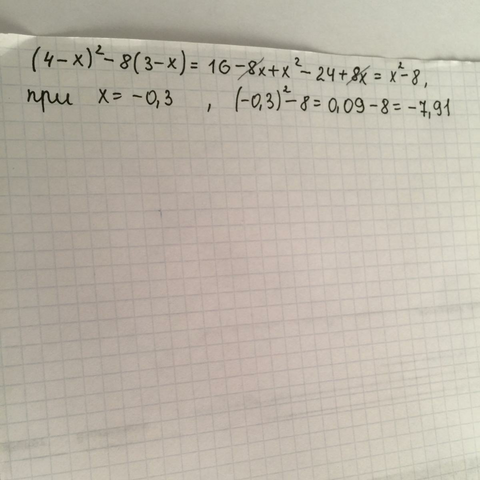 (4-x)²-8(3-x)= 16-8x+x²-24+8x = x²-8,
при x= -0,3 , (-0,3)²-8=0,09-8=-7,91